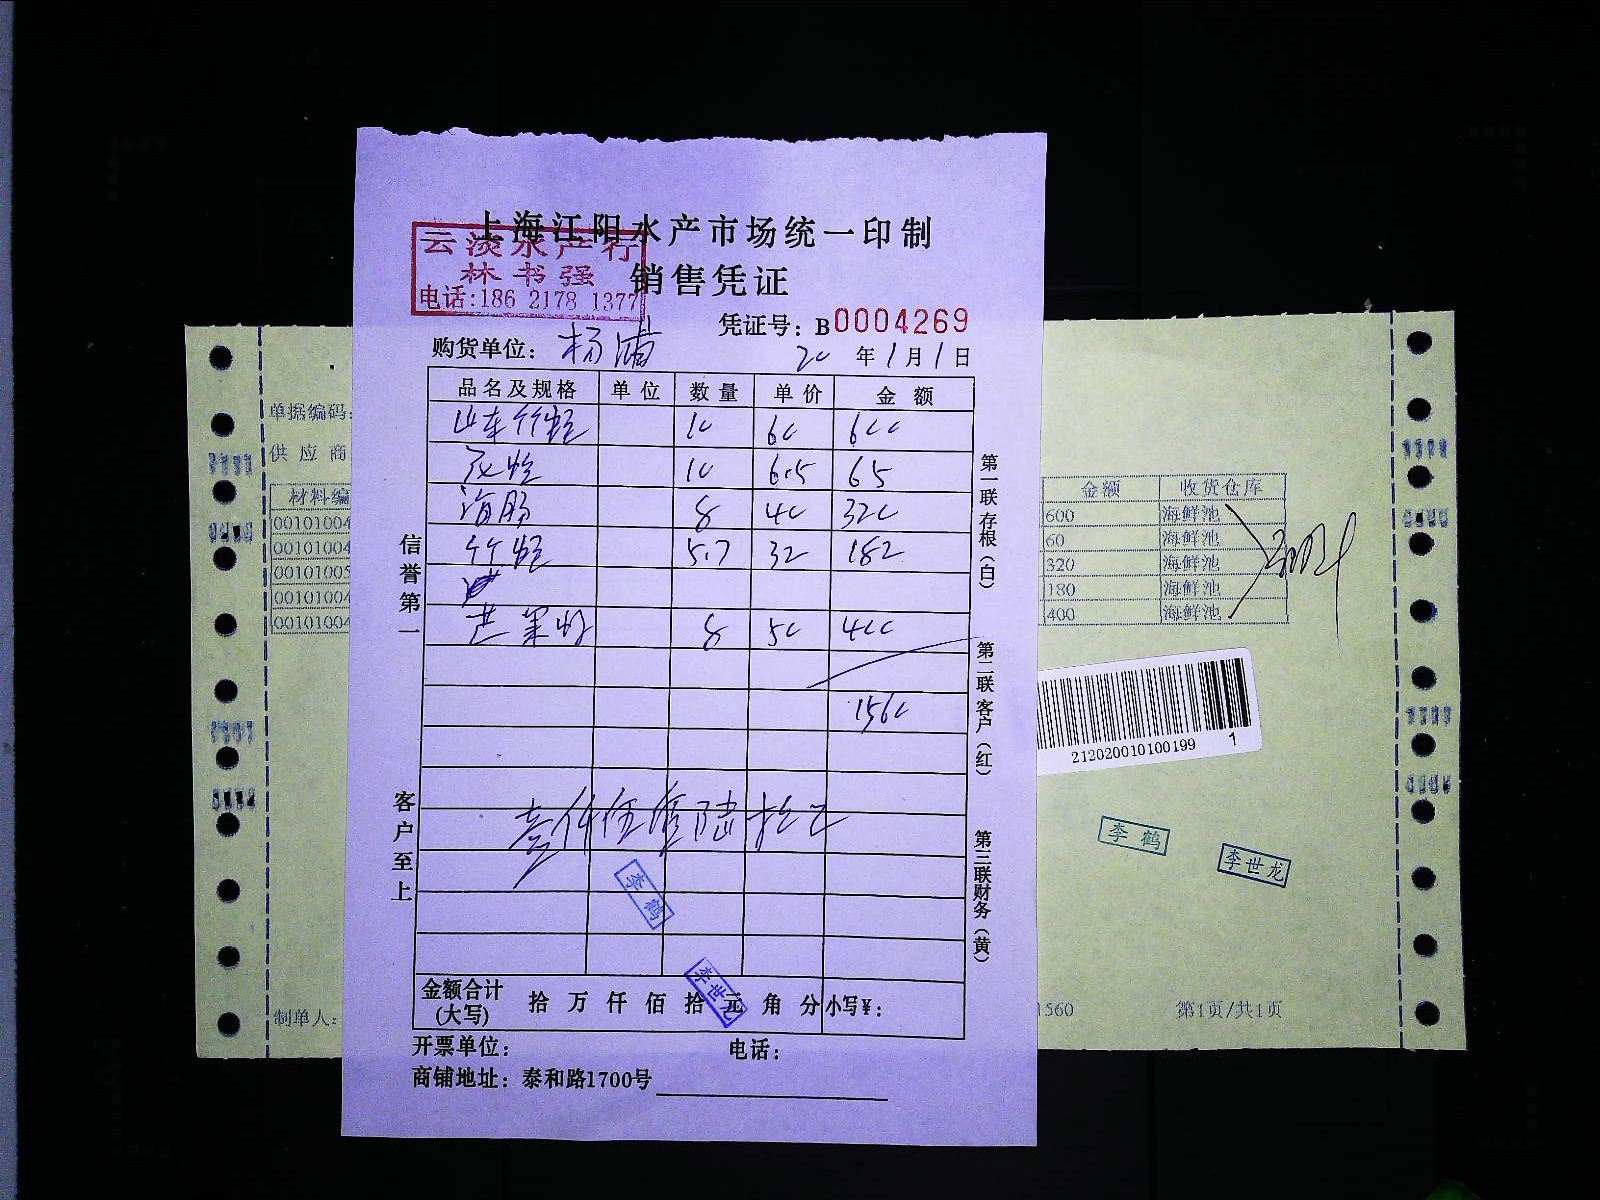 上海江阳水产市场统一印制
云淡水产行
林书强
电话:186 2178 1377
销售凭证
凭证号: B0004269
购货单位: 杨浦
20 年 1 月 1 日
品名及规格 单位 数量 单价 金额
山东竹蛏 10 60 600
花蛤 10 6.5 65
海肠 8 40 320
竹蛏 5.7 32 182
芒果 8 50 400
1560
壹仟伍佰陆拾元
李鹤
李世龙
金额合计(大写) 拾 万 仟 佰 拾 元 角 分 小写¥:
开票单位: 电话:
商铺地址: 泰和路1700号
信誉第一
客户至上
第一联存根(白)
第二联客户(红)
第三联财务(黄)
单据编码:
供应商
材料编
00101004
00101004
00101005
00101004
00101004
制单人:
金额 收货仓库
600 海鲜池
60 海鲜池
320 海鲜池
180 海鲜池
400 海鲜池
212020010100199 1
李鹤
李世龙
1560 第1页/共1页